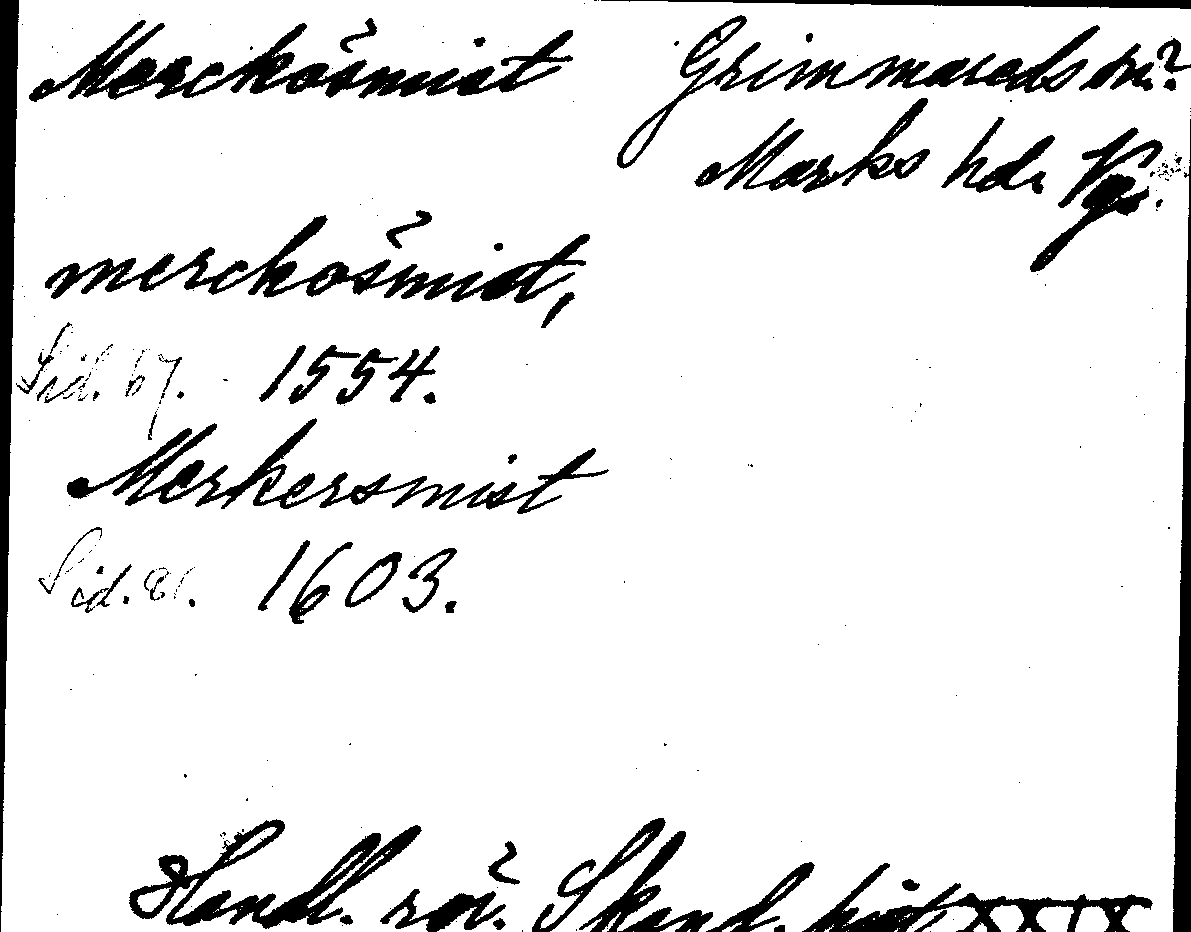 Merckösmist Grimmareds sn?
Marks hd. Vg.
merckösmist,
Sid. 67. 1554.
Merkersmist
Sid. 81. 1603.
Handl. rör. Skand. hist XXIX